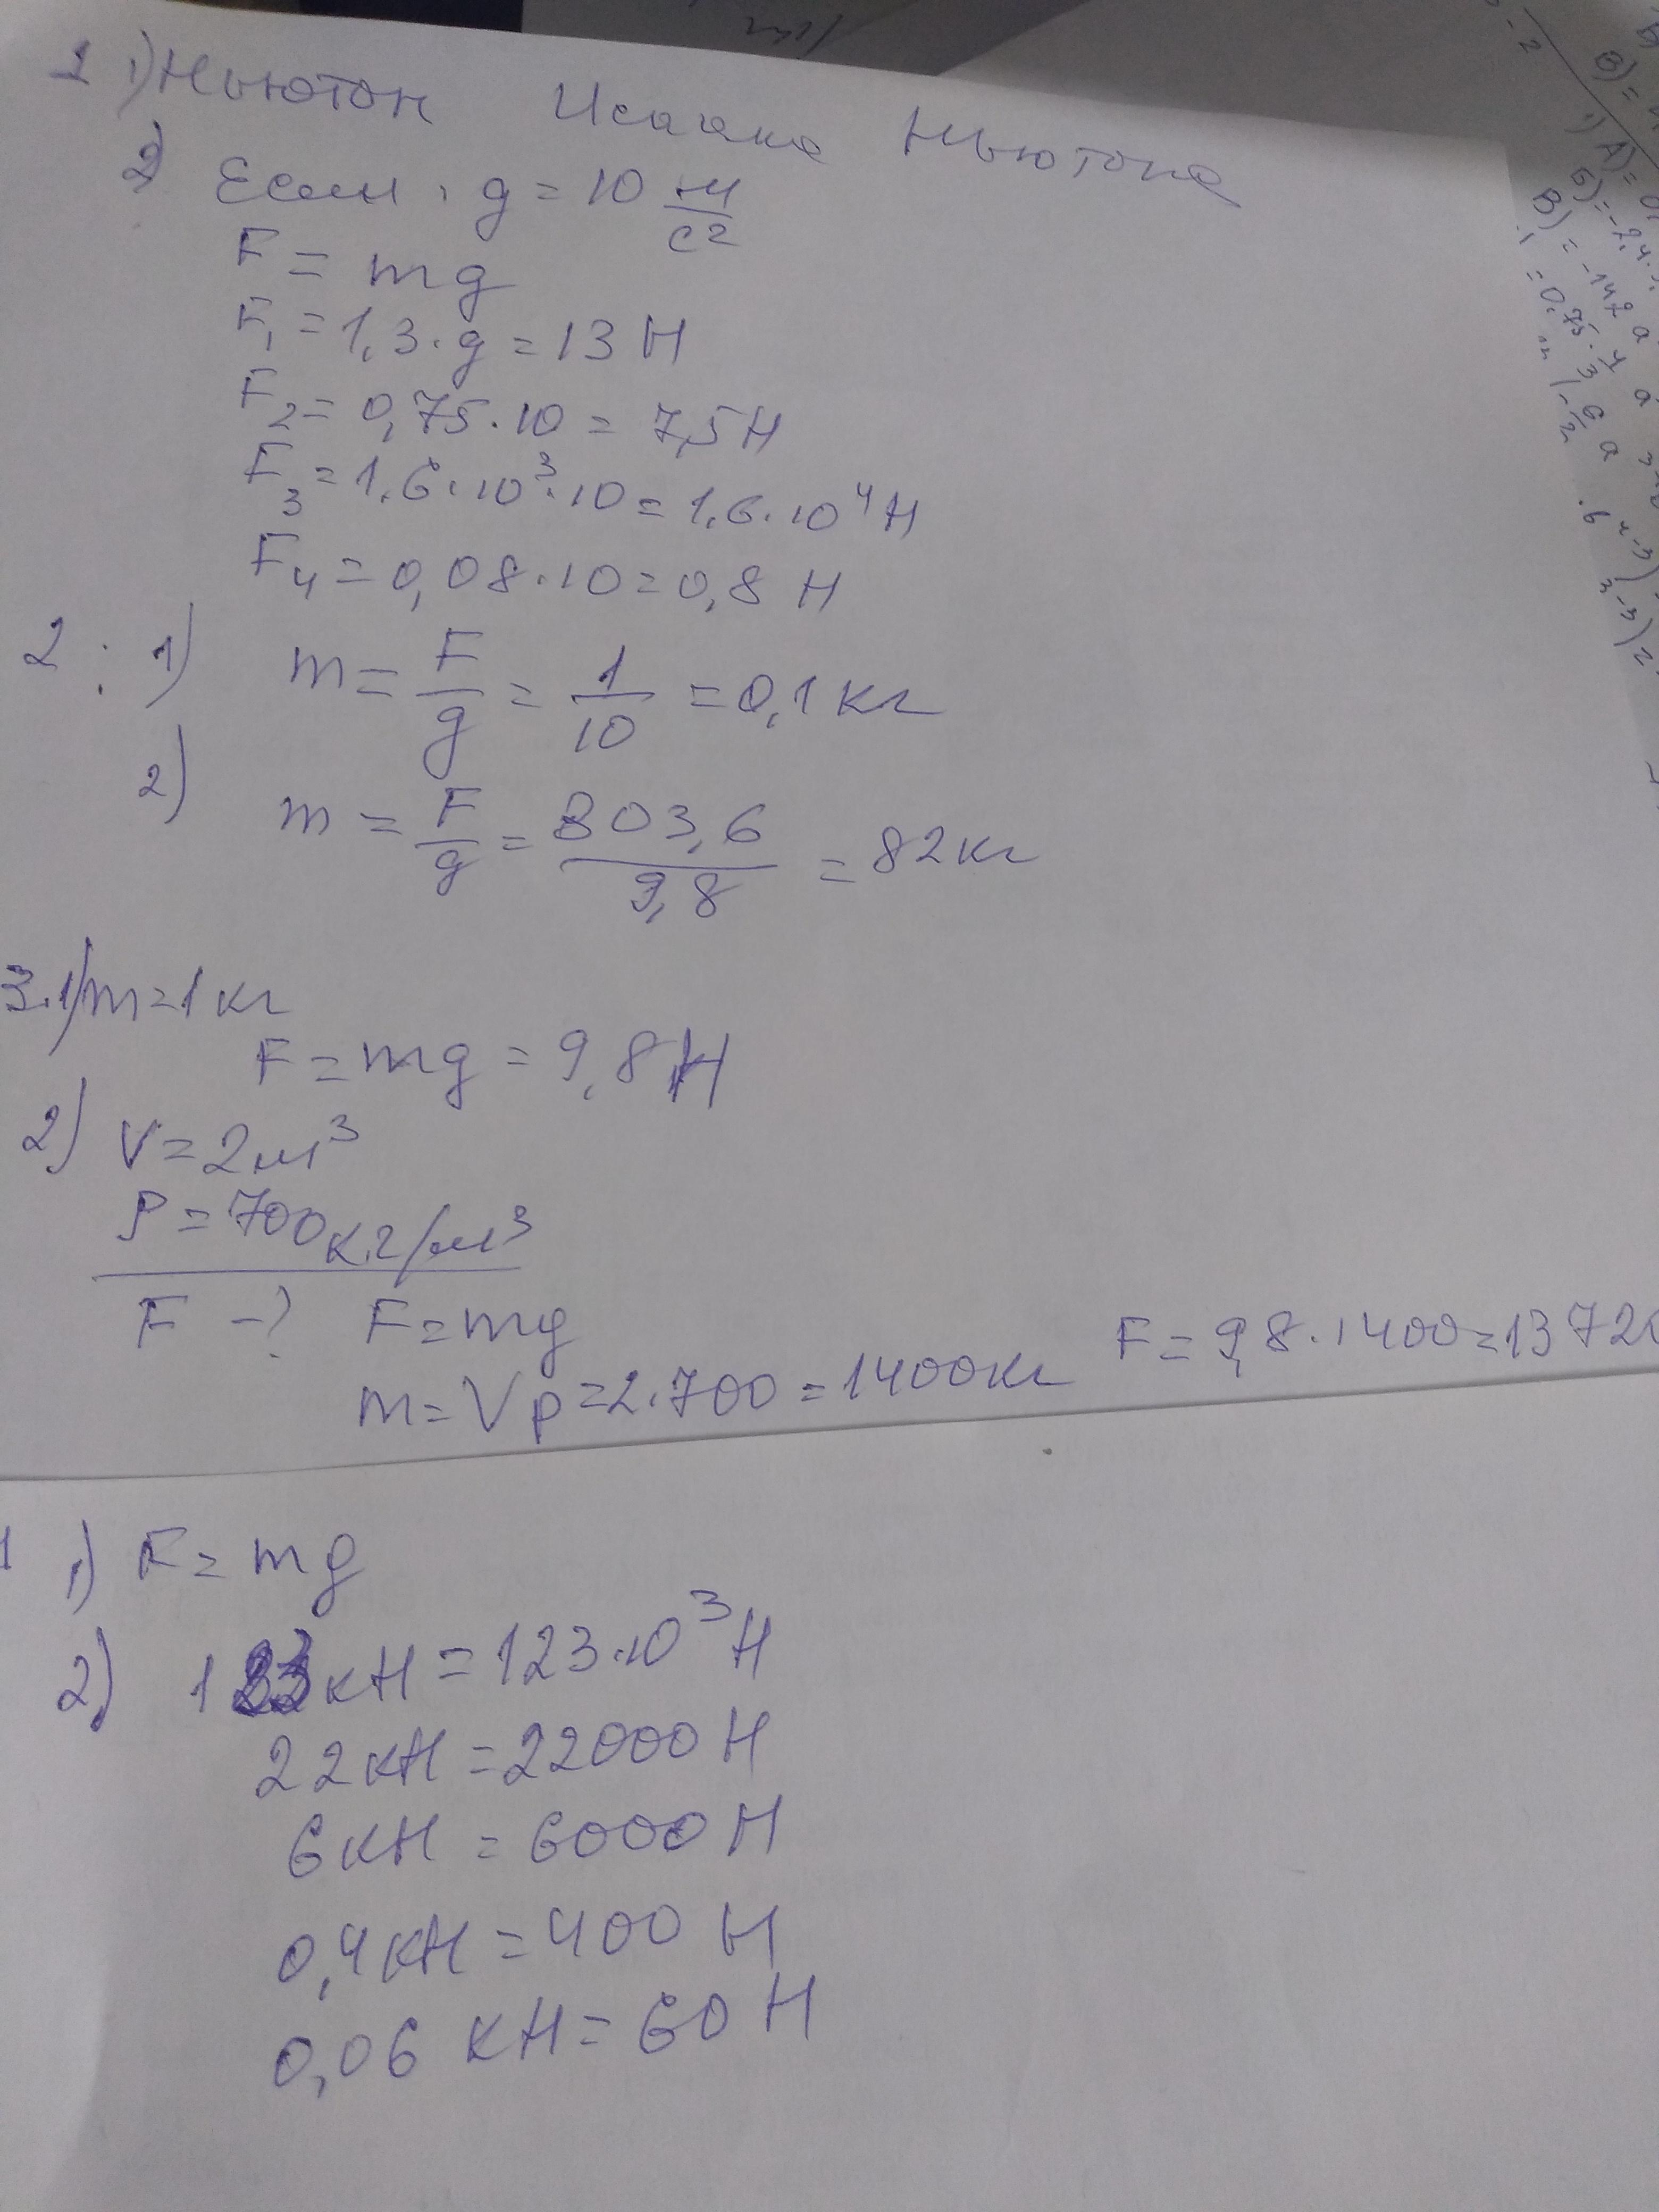 1 1) Ньютон Исаака Ньютона
2) Если, g = 10 м/с²
F = mg
F₁ = 1,3·g = 13 Н
F₂ = 0,75·10 = 7,5 Н
F₃ = 1.6·10³·10 = 1.6·10⁴ Н
F₄ = 0,08·10 = 0,8 Н
2. 1) m = F/g = 1/10 = 0,1 кг
2) m = F/g = 803,6/9,8 = 82 кг
3.1) m = 1 кг
F = mg = 9,8 Н
2) V = 2 м³
P = 700 кг/м³
F -? F = mg
m = Vρ = 2·700 = 1400 кг F = 9,8·1400 = 1372
1 1) F = mg
2) 123 кН = 123·10³ Н
22 кН = 22000 Н
6 кН = 6000 Н
0,4 кН = 400 Н
0,06 кН = 60 Н